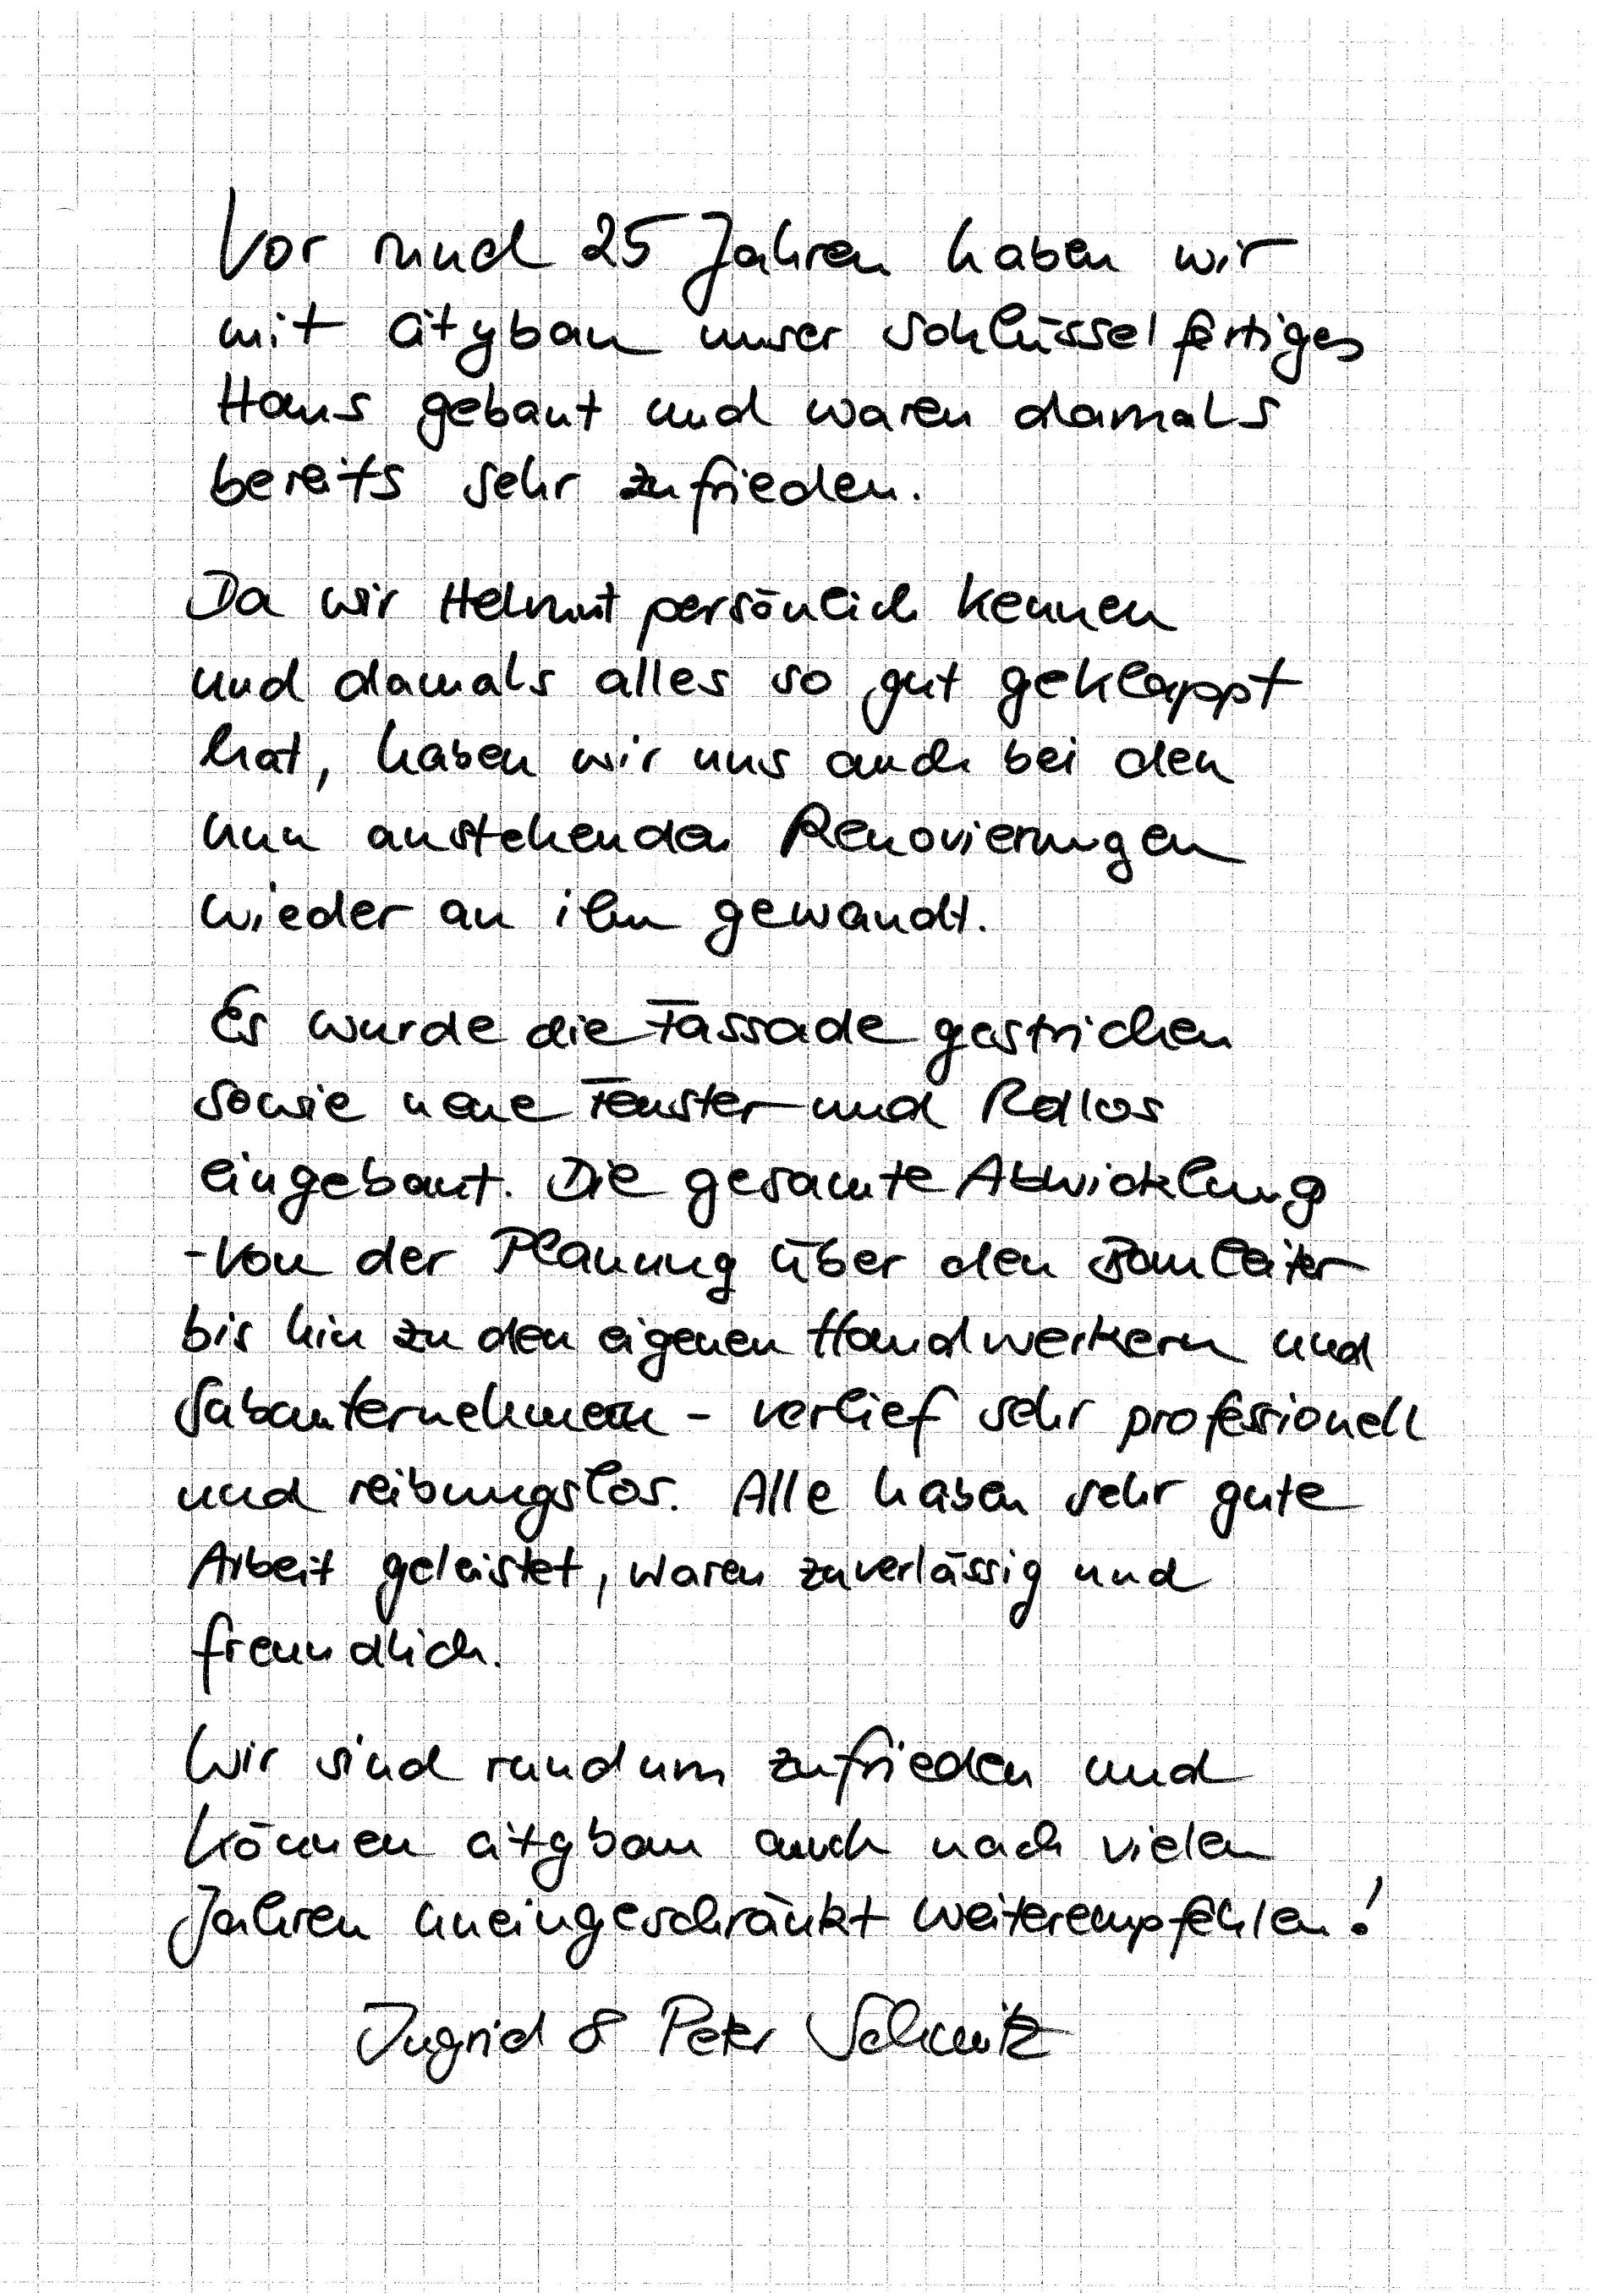 Vor rund 25 Jahren haben wir
mit citybau unser schlüsselfertiges
Haus gebaut und waren damals
bereits sehr zufrieden.
Da wir Helmut persönlich kennen
und damals alles so gut geklappt
hat, haben wir uns auch bei den
nun anstehenden Renovierungen
wieder an ihn gewandt.
Es wurde die Fassade gestrichen
sowie neue Fenster und Rollos
eingebaut. Die gesamte Abwicklung
-von der Planung über den Bauleiter
bis hin zu den eigenen Handwerkern und
Subunternehmern - verlief sehr professionell
und reibungslos. Alle haben sehr gute
Arbeit geleistet, waren zuverlässig und
freundlich.
Wir sind rundum zufrieden und
können citybau auch nach vielen
Jahren uneingeschränkt weiterempfehlen!
Ingrid & Peter Schmitz